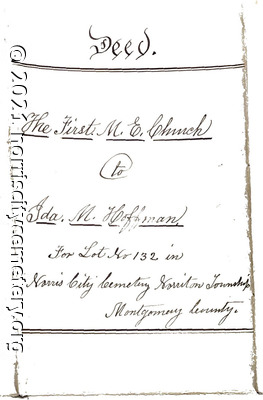 Deed.
The First, M. E. Church
to
Ida. M. Hoffman,
For Lot No 132 in
Norris City Cemetery Norriton Township
Montgomery County.
© 2021 norriscitycemetery.org